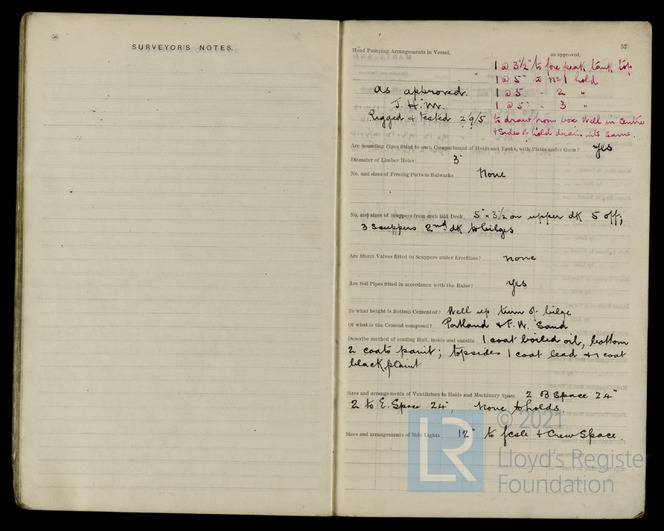 56
SURVEYOR'S NOTES.
57
Hand Pumping Arrangements in Vessel.
as approved.
1 @ 3½" to fore peak tank top
1 @ 5" No 1 hold
1 @ 5 " 2 "
1 @ 5 " 3 "
as approved.
J. H. M.
Rigged & tested 29/5
to draw from box well in centre
& sides of hold drain into same.
Are Sounding Pipes fitted to each Compartment of Holds and Tanks, with Plates under them? Yes
Diameter of Limber Holes 3"
No. and sizes of Freeing Ports in Bulwarks None
No. and sizes of Scuppers from each laid Deck, 5" x 3½ on upper dk 5 off;
3 scuppers 2nd dk to bilges
Are Storm Valves fitted to Scuppers under Erections? none
Are Soil Pipes fitted in accordance with the Rules? Yes
To what height is Bottom Cemented? Well up turn of bilge
Of what is the Cement composed? Portland & F.W. Sand
Describe method of coating Hull, inside and outside 1 coat boiled oil, bottom
2 coats paint; topsides 1 coat lead & 1 coat
black paint
Sizes and arrangements of Ventilators to Holds and Machinery Space 2 B Space 24"
2 to E. Space 24", None to holds.
Sizes and arrangements of Side Lights 12" to fcsle & Crew Space.
© 2021
LR
Lloyd's Register
Foundation